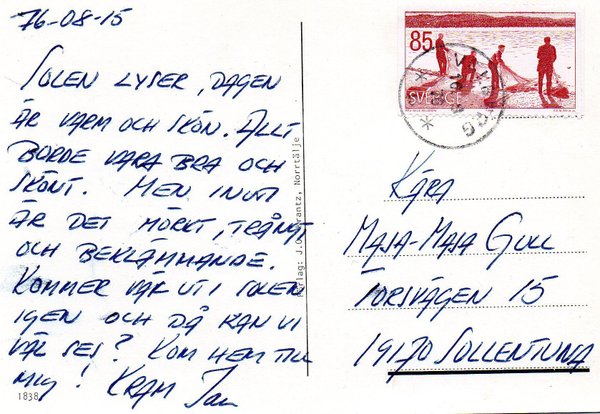 76-08-15
SOLEN LYSER, DAGEN
ÄR VARM OCH SKÖN. ALLT
BORDE VARA BRA OCH
SKÖNT. MEN INUTI
ÄR DET MÖRKT, TRÅNGT
OCH BEKLÄMMANDE.
KOMMER VÄL UT I SOLEN
IGEN OCH DÅ KAN VI
VÄL SES? KOM HEM TILL
MIG! KRAM Jan
1838
Norrtälje
85
SVERIGE
KÄRA
MAJA-MAJA GULL
TORSVÄGEN 15
19170 SOLLENTUNA